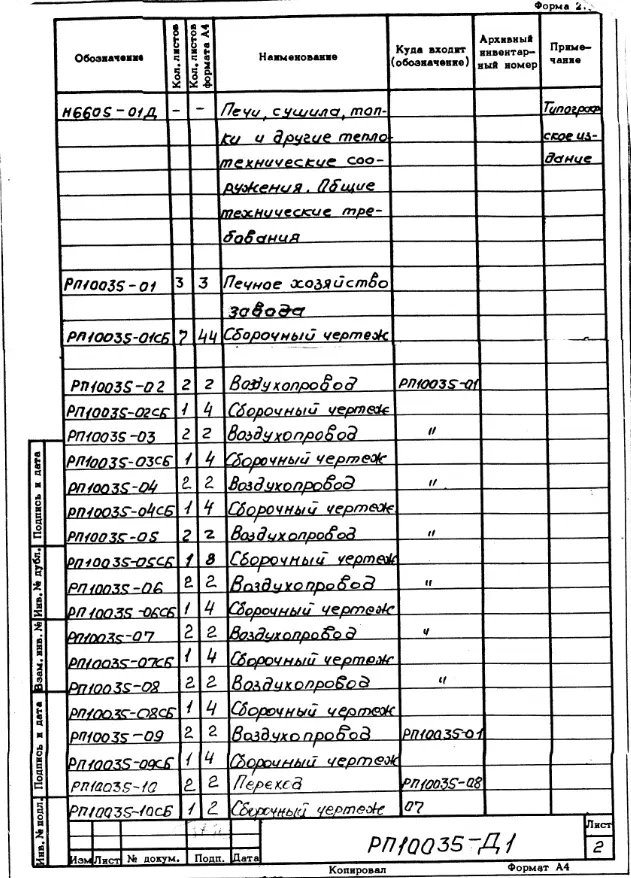 Форма 2
Обозначение Кол. листов Кол. листов формата А4 Наименование Куда входит (обозначение) Архивный инвентарный номер Примечание
Н6605-01Д - - Печи, сушила, топ- Типограф-
ки и другие тепло- ское из-
технические соо- дание
ружения. Общие
технические тре-
бования
РП10035-01 3 3 Печное хозяйство
завода
РП10035-01СБ 7 44 Сборочный чертеж
РП10035-02 2 2 Воздухопровод РП10035-01
РП10035-02СБ 1 4 Сборочный чертеж
РП10035-03 2 2 Воздухопровод "
РП10035-03СБ 1 4 Сборочный чертеж
РП10035-04 2 2 Воздухопровод "
РП10035-04СБ 1 4 Сборочный чертеж
РП10035-05 2 2 Воздухопровод "
РП10035-05СБ 1 8 Сборочный чертеж
РП10035-06 2 2 Воздухопровод "
РП10035-06СБ 1 4 Сборочный чертеж
РП10035-07 2 2 Воздухопровод "
РП10035-07СБ 1 4 Сборочный чертеж
РП10035-08 2 2 Воздухопровод "
РП10035-08СБ 1 4 Сборочный чертеж
РП10035-09 2 2 Воздухопровод РП10035-01
РП10035-09СБ 1 4 Сборочный чертеж
РП10035-10 2 2 Переход РП10035-08
РП10035-10СБ 1 2 Сборочный чертеж 07
Инв. № подл. Подпись и дата Взам. инв. № Инв. № дубл. Подпись и дата
Изм Лист № докум. Подп. Дата
РП10035-Д1
Лист
2
Копировал Формат А4